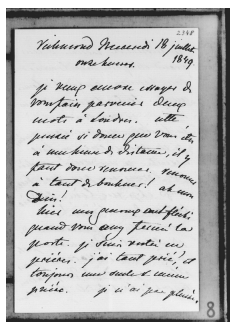 2348
Richmond Mercredi 18 juillet
1849
onze heures.
je veux encore essayer de
vous faire parvenir deux
mots à Londres. cette
pensée si douce que vous êtes
à une heure de distance, il y
faut donc renoncer, renoncer
à tant de bonheur! ah mon
Dieu!
hier mes genoux ont fléchi
quand vous avez fermé la
porte. je suis restée en
prières. j'ai tant prié, et
toujours une seule & même
prière. je n'ai pas pleuré.
8